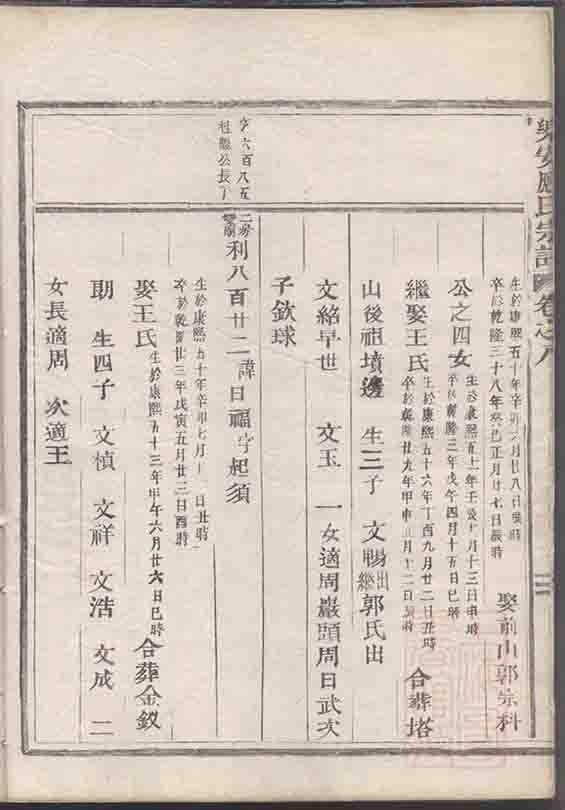 樂安應氏宗譜 卷之八
生於康熙五十年辛卯 月廿八日 時
卒於乾隆三十八年癸巳正月廿七日辰時
娶前山郭宗科
公之四女
生於康熙五十一年壬辰 月十三日 時
卒於乾隆三年戊午四月十五日巳時
繼娶王氏
生於康熙五十六年丁酉九月廿二日丑時
卒於乾隆廿九年甲申 月十二日辰時
合葬塔
山後祖墳邊 生三子 文賜出繼 郭氏出
文給早世 文玉 一女適周巖頭周日武次
子欽球
字六百八五
桂 公長子
二房
利八百廿二諱日福字起須
生於康熙五十年辛卯七月 日丑時
卒於乾隆廿三年戊寅五月廿三日酉時
娶王氏
生於康熙五十三年甲午六月廿六日巳時
合葬金釵
助 生四子 文楨 文祥 文浩 文成 二
女長適周 次適王